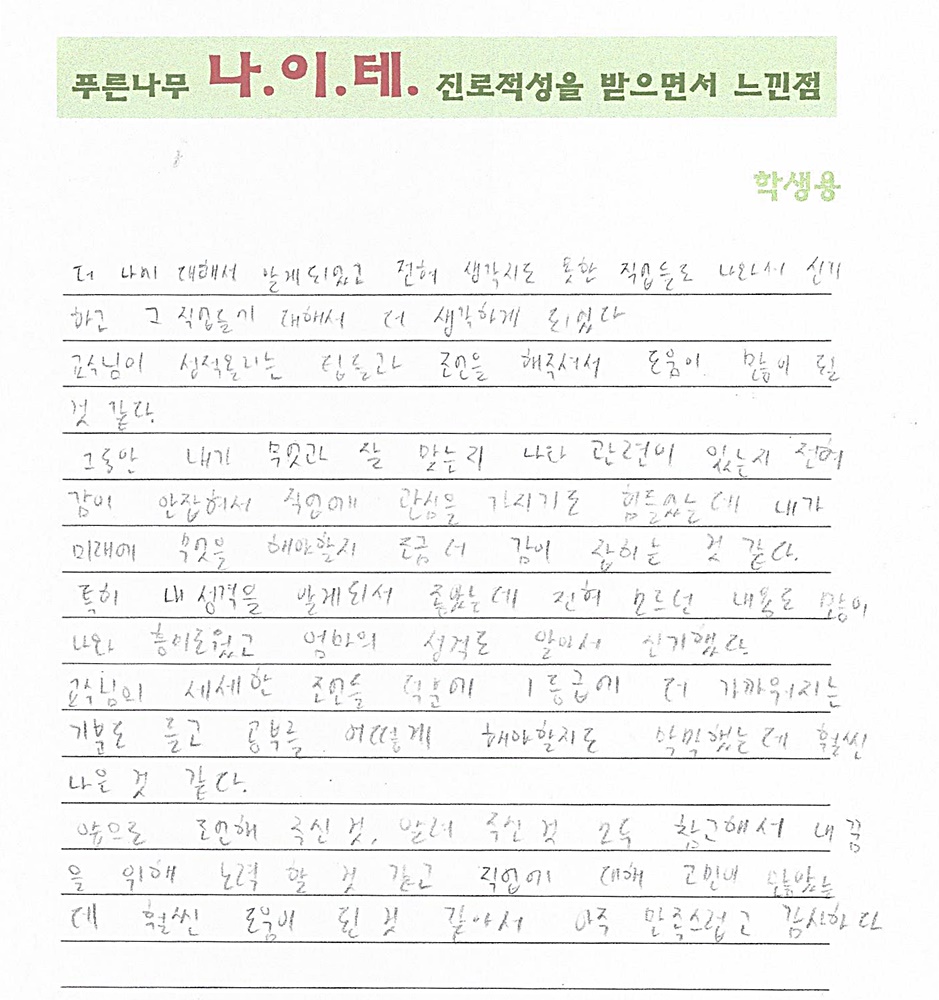 푸른나무 나.이.테. 진로적성을 받으면서 느낀점
학생용
더 나에 대해서 알게되었고 전혀 생각지도 못한 직업들도 나와서 신기
하고 그 직업들에 대해서 더 생각하게 되었다
교수님이 성적올리는 팁들과 조언을 해주셔서 도움이 많이 될
것 같다.
그동안 내가 무엇과 잘 맞는지 나와 관련이 있는지 전혀
감이 안잡혀서 직업에 관심을 가지기도 힘들었는데 내가
미래에 무엇을 해야할지 조금 더 감이 잡히는 것 같다.
특히 내 성격을 알게되서 좋았는데 전혀 모르던 내용도 많이
나와 흥미로웠고 엄마의 성격도 알아서 신기했다.
교수님의 세세한 조언들 덕분에 1등급에 더 가까워지는
기분도 들고 공부를 어떻게 해야할지도 막막했는데 훨씬
나은 것 같다.
앞으로 조언해 주신 것, 알려 주신 것 모두 참고해서 내 꿈
을 위해 노력 할 것 같고 직업에 대해 고민이 많았는
데 훨씬 도움이 된 것 같아서 아주 만족스럽고 감사하다